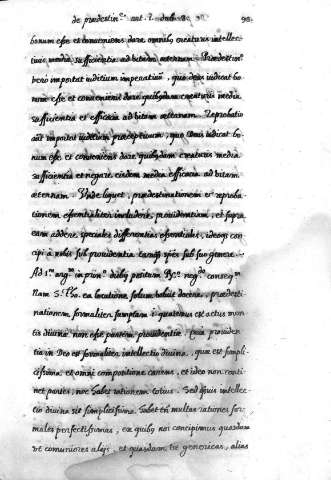 de prædestin.e art. 2. dub. 98.
bonum esse et conveniens dare omnibus creaturis intellec-
tivis media sufficientia ad vitam æternam. Prædestin.o
vero importat iuditium imperativum, quo deus iudicat bo-
num esse et conveniens dare quibusdam creaturis media
sufficientia et efficacia ad vitam æternam. Reprobatio
aut importat iuditium præceptivum, quo deus iudicat bo-
num esse et conveniens dare quibusdam creaturis media
sufficientia et negare eisdem media efficacia ad vitam
æternam. Unde liquet, prædestinationem et reproba-
tionem essentialiter includere providentiam, et supra
eam addere speciales differentias essentiales, ideoque con-
cipi a nobis sub providentia tanquam species sub suo genere.
Ad 1.m arg.m in prin.o dubij positum Rs. neg.do conseq.m
Nam S. Tho. ea locutione solum voluit docere, prædesti-
nationem formaliter sumptam quatenus est actus men-
tis divinæ non esse partem providentiæ. Quia providen-
tia in Deo est formaliter intellectio divina, quæ est simpli-
cissima et omni compositione carens, et ideo non conti-
net partes, nec habet rationem totius. Sed quamvis intellec-
tio divina sit simplicissima, habet tamen multas rationes for-
males perfectissimas, ex quibus nos concipimus quasdam
ut comuniores alijs, et quasdam ut genericas, alias